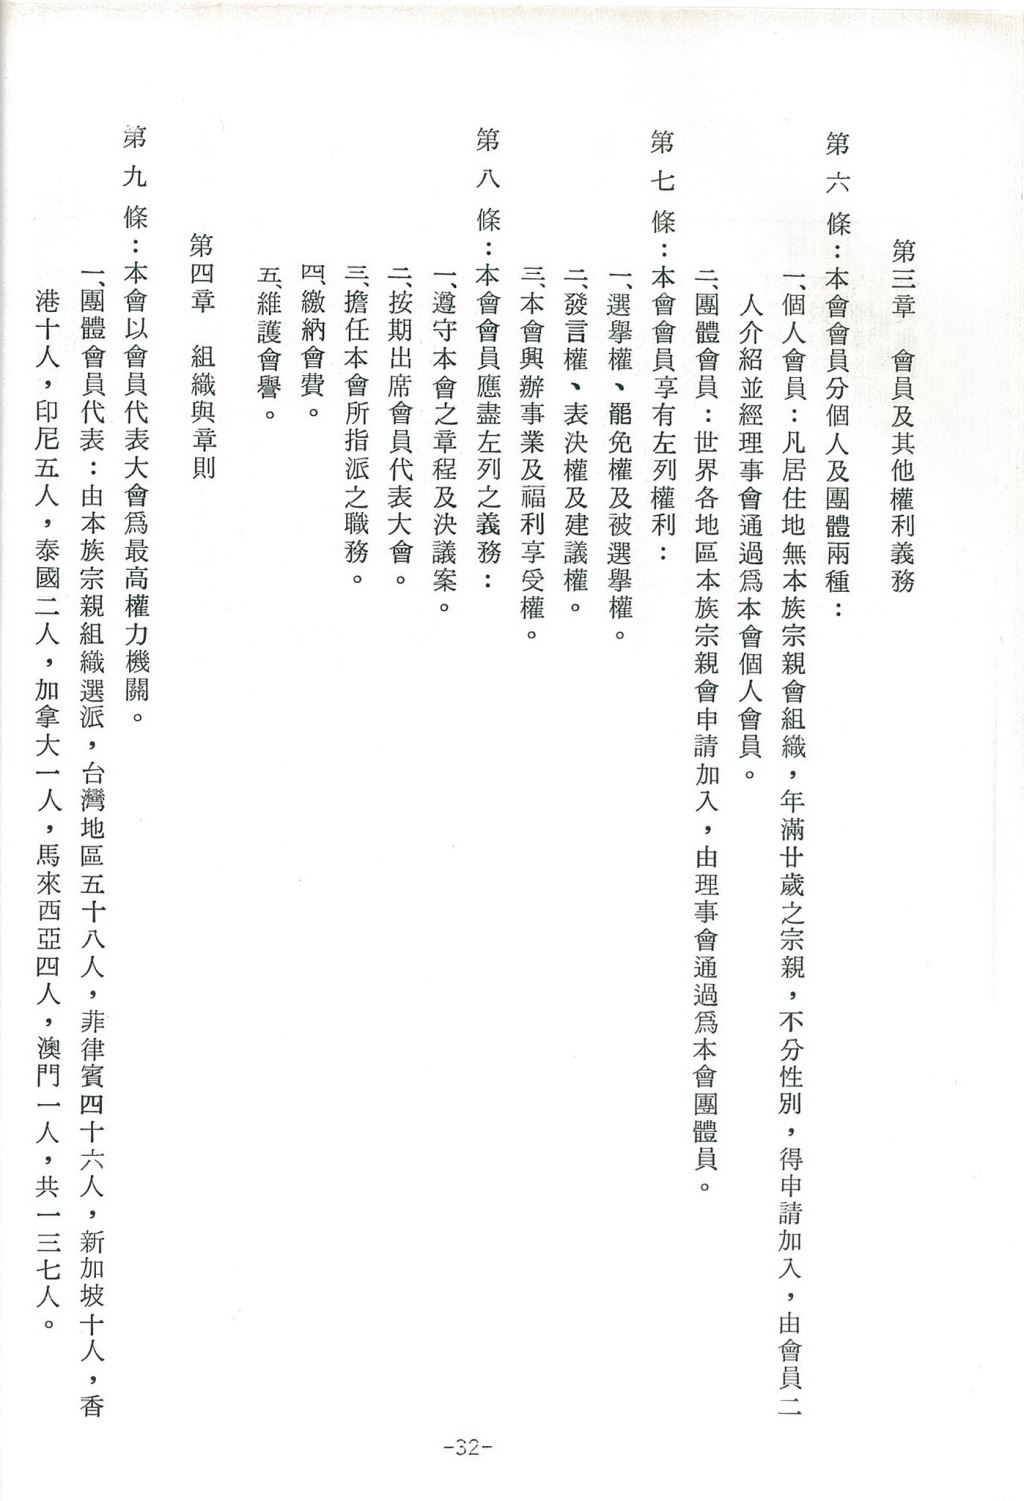 第三章　會員及其他權利義務
第六條：本會會員分個人及團體兩種：
一、個人會員：凡居住地無本族宗親會組織，年滿廿歲之宗親，不分性別，得申請加入，由會員二
人介紹並經理事會通過爲本會個人會員。
二、團體會員：世界各地區本族宗親會申請加入，由理事會通過爲本會團體員。
第七條：本會會員享有左列權利：
一、選舉權、罷免權及被選舉權。
二、發言權、表決權及建議權。
三、本會興辦事業及福利享受權。
第八條：本會會員應盡左列之義務：
一、遵守本會之章程及決議案。
二、按期出席會員代表大會。
三、擔任本會所指派之職務。
四、繳納會費。
五、維護會譽。
第四章　組織與章則
第九條：本會以會員代表大會爲最高權力機關。
一、團體會員代表：由本族宗親組織選派，台灣地區五十八人，菲律賓四十六人，新加坡十人，香
港十人，印尼五人，泰國二人，加拿大一人，馬來西亞四人，澳門一人，共一三七人。
-32-